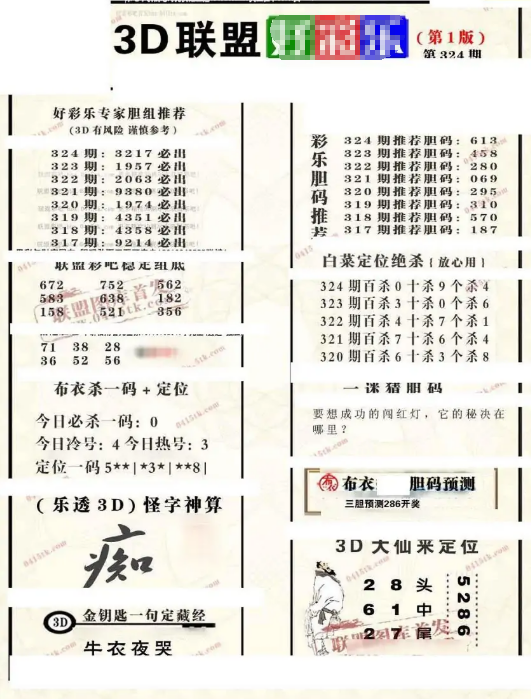 3D联盟好彩乐
(第1版)
第324期
好彩乐专家胆组推荐
(3D有风险 谨慎参考)
324期:3217必出
323期:1957必出
322期:2063必出
321期:9380必出
320期:1974必出
319期:4351必出
318期:4358必出
317期:9214必出
联盟彩吧稳定组底
672 752 562
583 638 182
158 521 356
71 38 28
36 52 56
布衣杀一码+定位
今日必杀一码:0
今日冷号:4 今日热号:3
定位一码5**|*3*|**8|
(乐透3D)怪字神算
痴
3D 金钥匙一句定藏经
牛衣夜哭
彩乐胆码推荐
324期推荐胆码:613
323期推荐胆码:458
322期推荐胆码:280
321期推荐胆码:069
320期推荐胆码:295
319期推荐胆码:310
318期推荐胆码:570
317期推荐胆码:187
白菜定位绝杀{放心用}
324期百杀0十杀9个杀4
323期百杀3十杀0个杀6
322期百杀4十杀7个杀1
321期百杀7十杀6个杀4
320期百杀6十杀3个杀8
一迷猜胆码
要想成功的闯红灯,它的秘决在
哪里?
布衣 胆码预测
三胆预测286开奖
3D大仙来定位
2 8头
6 1中
2 7尾
5286
联盟图库首发
0415tk.com